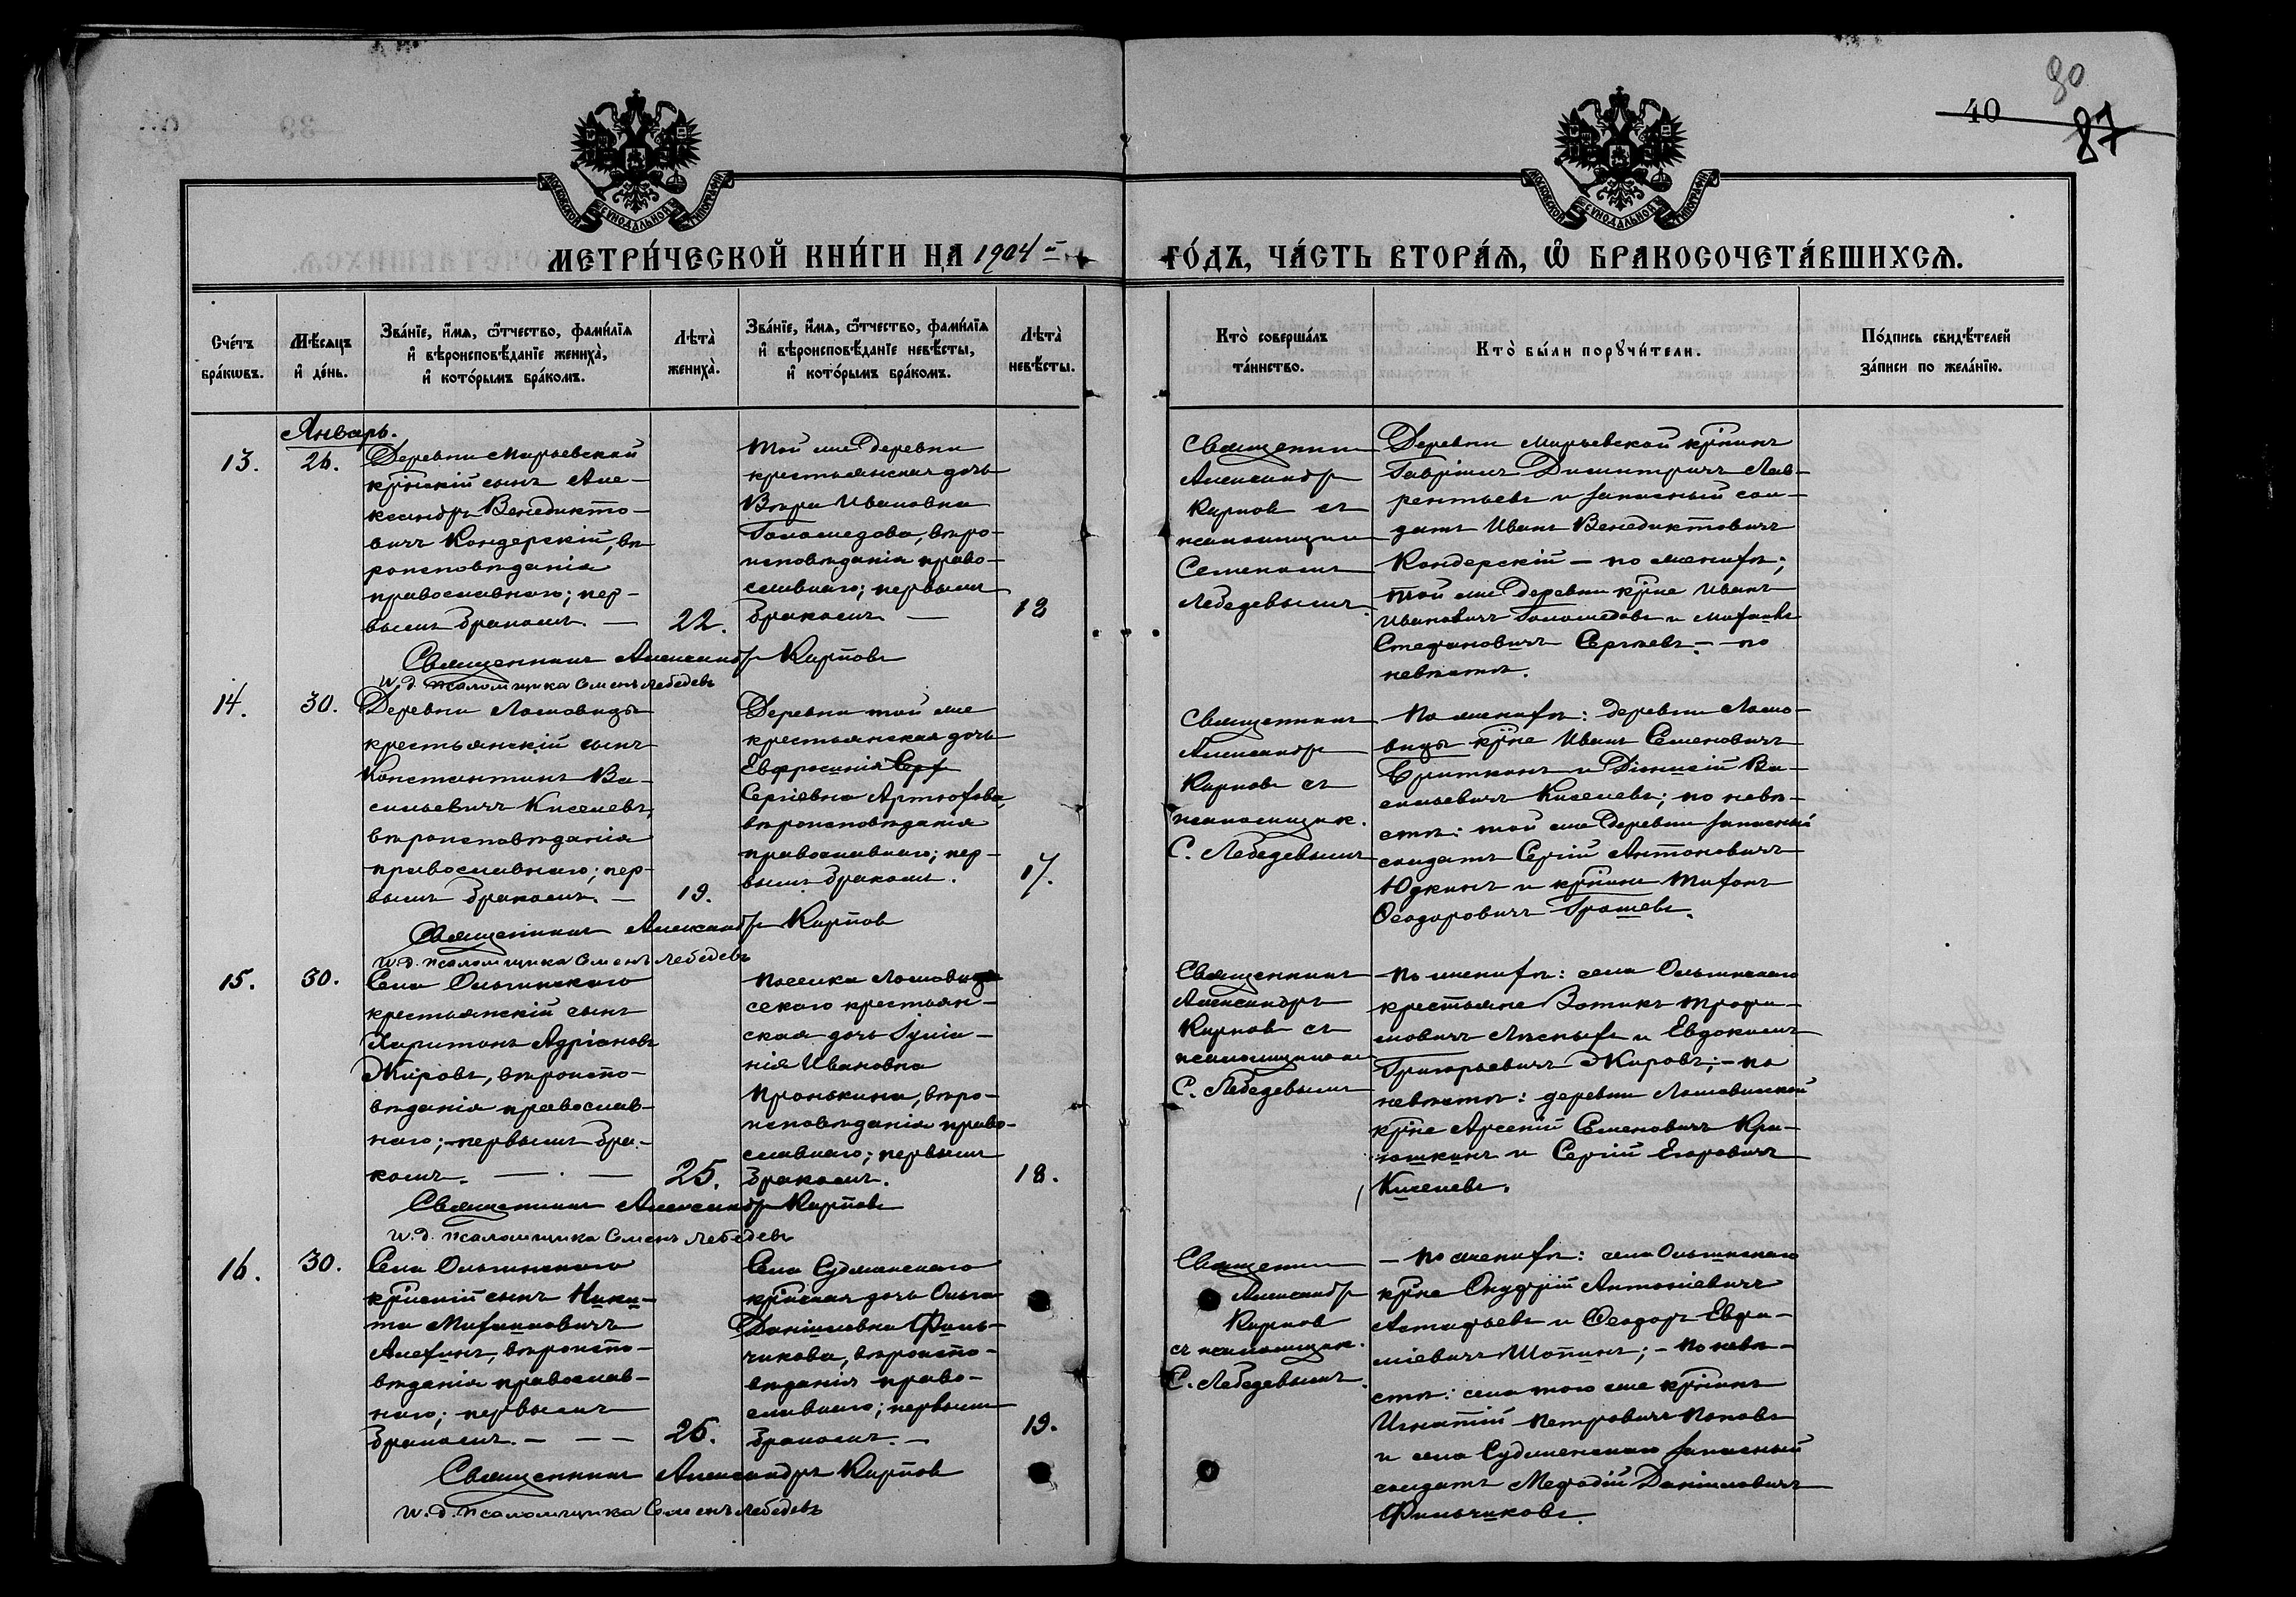 90
40
87
МОСКОВСКОЙ СУНОДАЛЬНОЙ ТИПОГРАФІИ
МОСКОВСКОЙ СУНОДАЛЬНОЙ ТИПОГРАФІИ
МЕТРИ́ЧЕСКОЙ КНИ́ГИ НА 1904 й
ГО́ДЪ, ЧА́СТЬ ВТОРА́Ѧ, Ѽ БРАКОСОЧЕТА́ВШИХСѦ.
Сче́тъ бра́кѡвъ.
Мѣ́сяцъ и҆ де́нь.
Зва́нїе, и҆́мѧ, ѻ҆́тчество, фами́лїѧ и҆ вѣроисповѣ́данїе жениха̀, и҆ кото́рымъ бра́комъ.
Лѣта̀ жениха̀.
Зва́нїе, и҆́мѧ, ѻ҆́тчество, фами́лїѧ и҆ вѣроисповѣ́данїе невѣ́сты, и҆ кото́рымъ бра́комъ.
Лѣта̀ невѣ́сты.
Кто̀ соверша́лъ та́инство.
Кто̀ бы́ли порꙋчи́тели.
По́дпись свидѣ́телей за́писи по жела́нїю.
Январь.
13.
26.
Деревни Марьевской
кр̃нскій сынъ Але-
ксандръ Венедикто-
вичъ Кондерскій, вѣ-
роисповѣданія
православнаго; пер-
вымъ бракомъ. —
22.
Той же деревни
крестьянская дочь
Вѣра Ивановна
Голомедова, вѣро-
исповѣданія право-
славнаго; первымъ
бракомъ —
18
Священник
Александр
Карпов съ
псаломщик
Семеномъ
Лебедевымъ.
Деревни Марьевской кр̃нинъ
Гавріилъ Димитричъ Лав-
рентьевъ и запасный сол-
датъ Иванъ Венедиктовичъ
Кондерскій — по женихѣ;
той же деревни кр̃не Иванъ
Ивановичъ Голомедовъ и Михаилъ
Стефановичъ Сергѣевъ — по
невѣстѣ.
Священникъ Александръ Карповъ
И. д. псаломщика Семенъ Лебедевъ
14.
30.
Деревни Ломовицы
крестьянскій сынъ
Константинъ Ва-
сильевичъ Киселевъ,
вѣроисповѣданія
православнаго; пер-
вымъ бракомъ. —
19.
Деревни той же
крестьянская дочь
Евфросинія
Сергіевна Артюхова,
вѣроисповѣданія
православнаго; пер-
вымъ бракомъ.
17.
Священникъ
Александръ
Карповъ съ
псаломщик.
С. Лебедевымъ
По женихѣ: деревни Ломо-
вицы кр̃не Иванъ Семеновичъ
и Діонисій Ва-
сильевичъ Киселевъ; по невѣ-
стѣ: той же деревни запасный
солдатъ Сергій Антоновичъ
Юдкинъ и кр̃нинъ Тихонъ
Ѳеодоровичъ Грошевъ.
Священникъ Александръ Карпов
И. д. псаломщика Семенъ Лебедевъ
15.
30.
Села Ольгинскаго
крестьянскій сынъ
Харитонъ Адріановъ
Жировъ, вѣроиспо-
вѣданія православ-
наго; первымъ бра-
комъ. — · —
25.
Поселка Ломовиц
скаго крестьян-
ская дочь Іуліа-
нія Ивановна
Пронькина, вѣро-
исповѣданія право-
славнаго; первымъ
бракомъ.
18.
Священникъ
Александръ
Карповъ съ
псаломщикомъ
С. Лебедевымъ
По женихѣ: села Ольгинскаго
крестьяне Зотикъ Трофи-
мовичъ Лѣсныхъ и Евдокимъ
Григорьевичъ Жировъ; — по
невѣстѣ: деревни
кр̃не Арсеній Семеновичъ Кри-
юшкинъ и Сергій Егоровичъ
Киселевъ.
Священникъ Александръ Карповъ
И. д. псаломщика Семенъ Лебедевъ
16.
30.
Села Ольгинскаго
кр̃нскій сынъ Ники-
та Михаиловичъ
Алехинъ, вѣроиспо-
вѣданія православ-
наго; первымъ
бракомъ. — — —
25.
Села Судженскаго
кр̃нская дочь Ольга
Даніиловна Филь-
чикова, вѣроиспо-
вѣданія право-
славнаго; первымъ
бракомъ. —
19.
Священни
Александр
Карпов
съ псаломщик.
С. Лебедевымъ.
— По женихѣ: села Ольгинскаго
кр̃не Онуфрій Антоніевичъ
Астафьевъ и Ѳеодоръ Евфи-
міевичъ Шопинъ; — по невѣ-
стѣ: села того же кр̃нинъ
Игнатій Петровичъ Поповъ
и села Судженскаго запасный
солдатъ Меѳодій Даніиловичъ
Фильчиковъ.
Священникъ Александръ Карпов
И. д. псаломщика Семенъ Лебедевъ